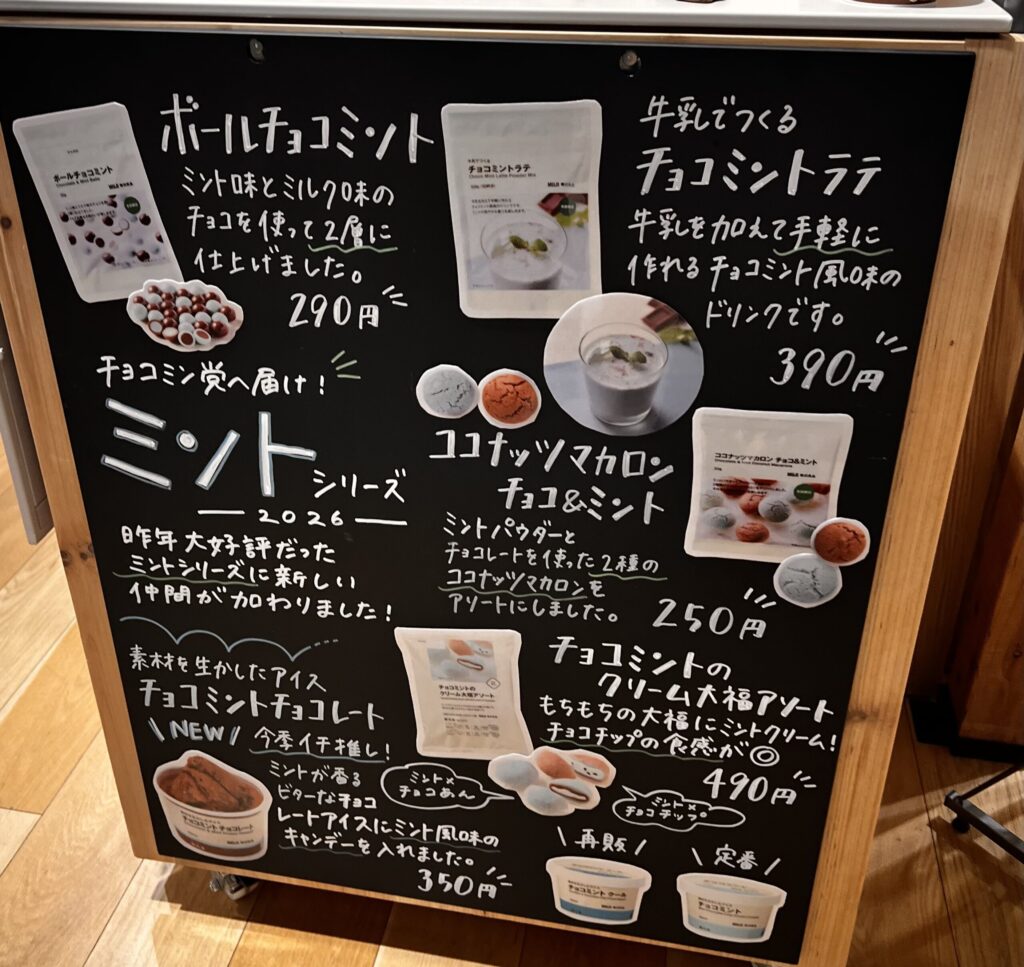 ボールチョコミント
ミント味とミルク味の
チョコを使って2層に
仕上げました。
290円
ボールチョコミント
牛乳でつくる
チョコミントラテ
牛乳を加えて手軽に
作れるチョコミント風味の
ドリンクです。
390円
チョコミントラテ
チョコミン党へ届け!
ミント
シリーズ
2026
昨年大好評だった
ミントシリーズに新しい
仲間が加わりました!
ココナッツマカロン
チョコ&ミント
ミントパウダーと
チョコレートを使った2種の
ココナッツマカロンを
アソートにしました。
250円
ココナッツマカロン チョコ&ミント
素材を生かしたアイス
チョコミントチョコレート
NEW
今季イチ推し!
ミントが香る
ビターなチョコ
レートアイスにミント風味の
キャンデーを入れました。
350円
チョコミント チョコレート
チョコミントの
クリーム大福アソート
もちもちの大福にミントクリーム!
チョコチップの食感が◎
490円
チョコミントの
クリーム大福アソート
ミント×
チョコあん
ミント×
チョコチップ
再販
定番
チョコミント クール
チョコミント